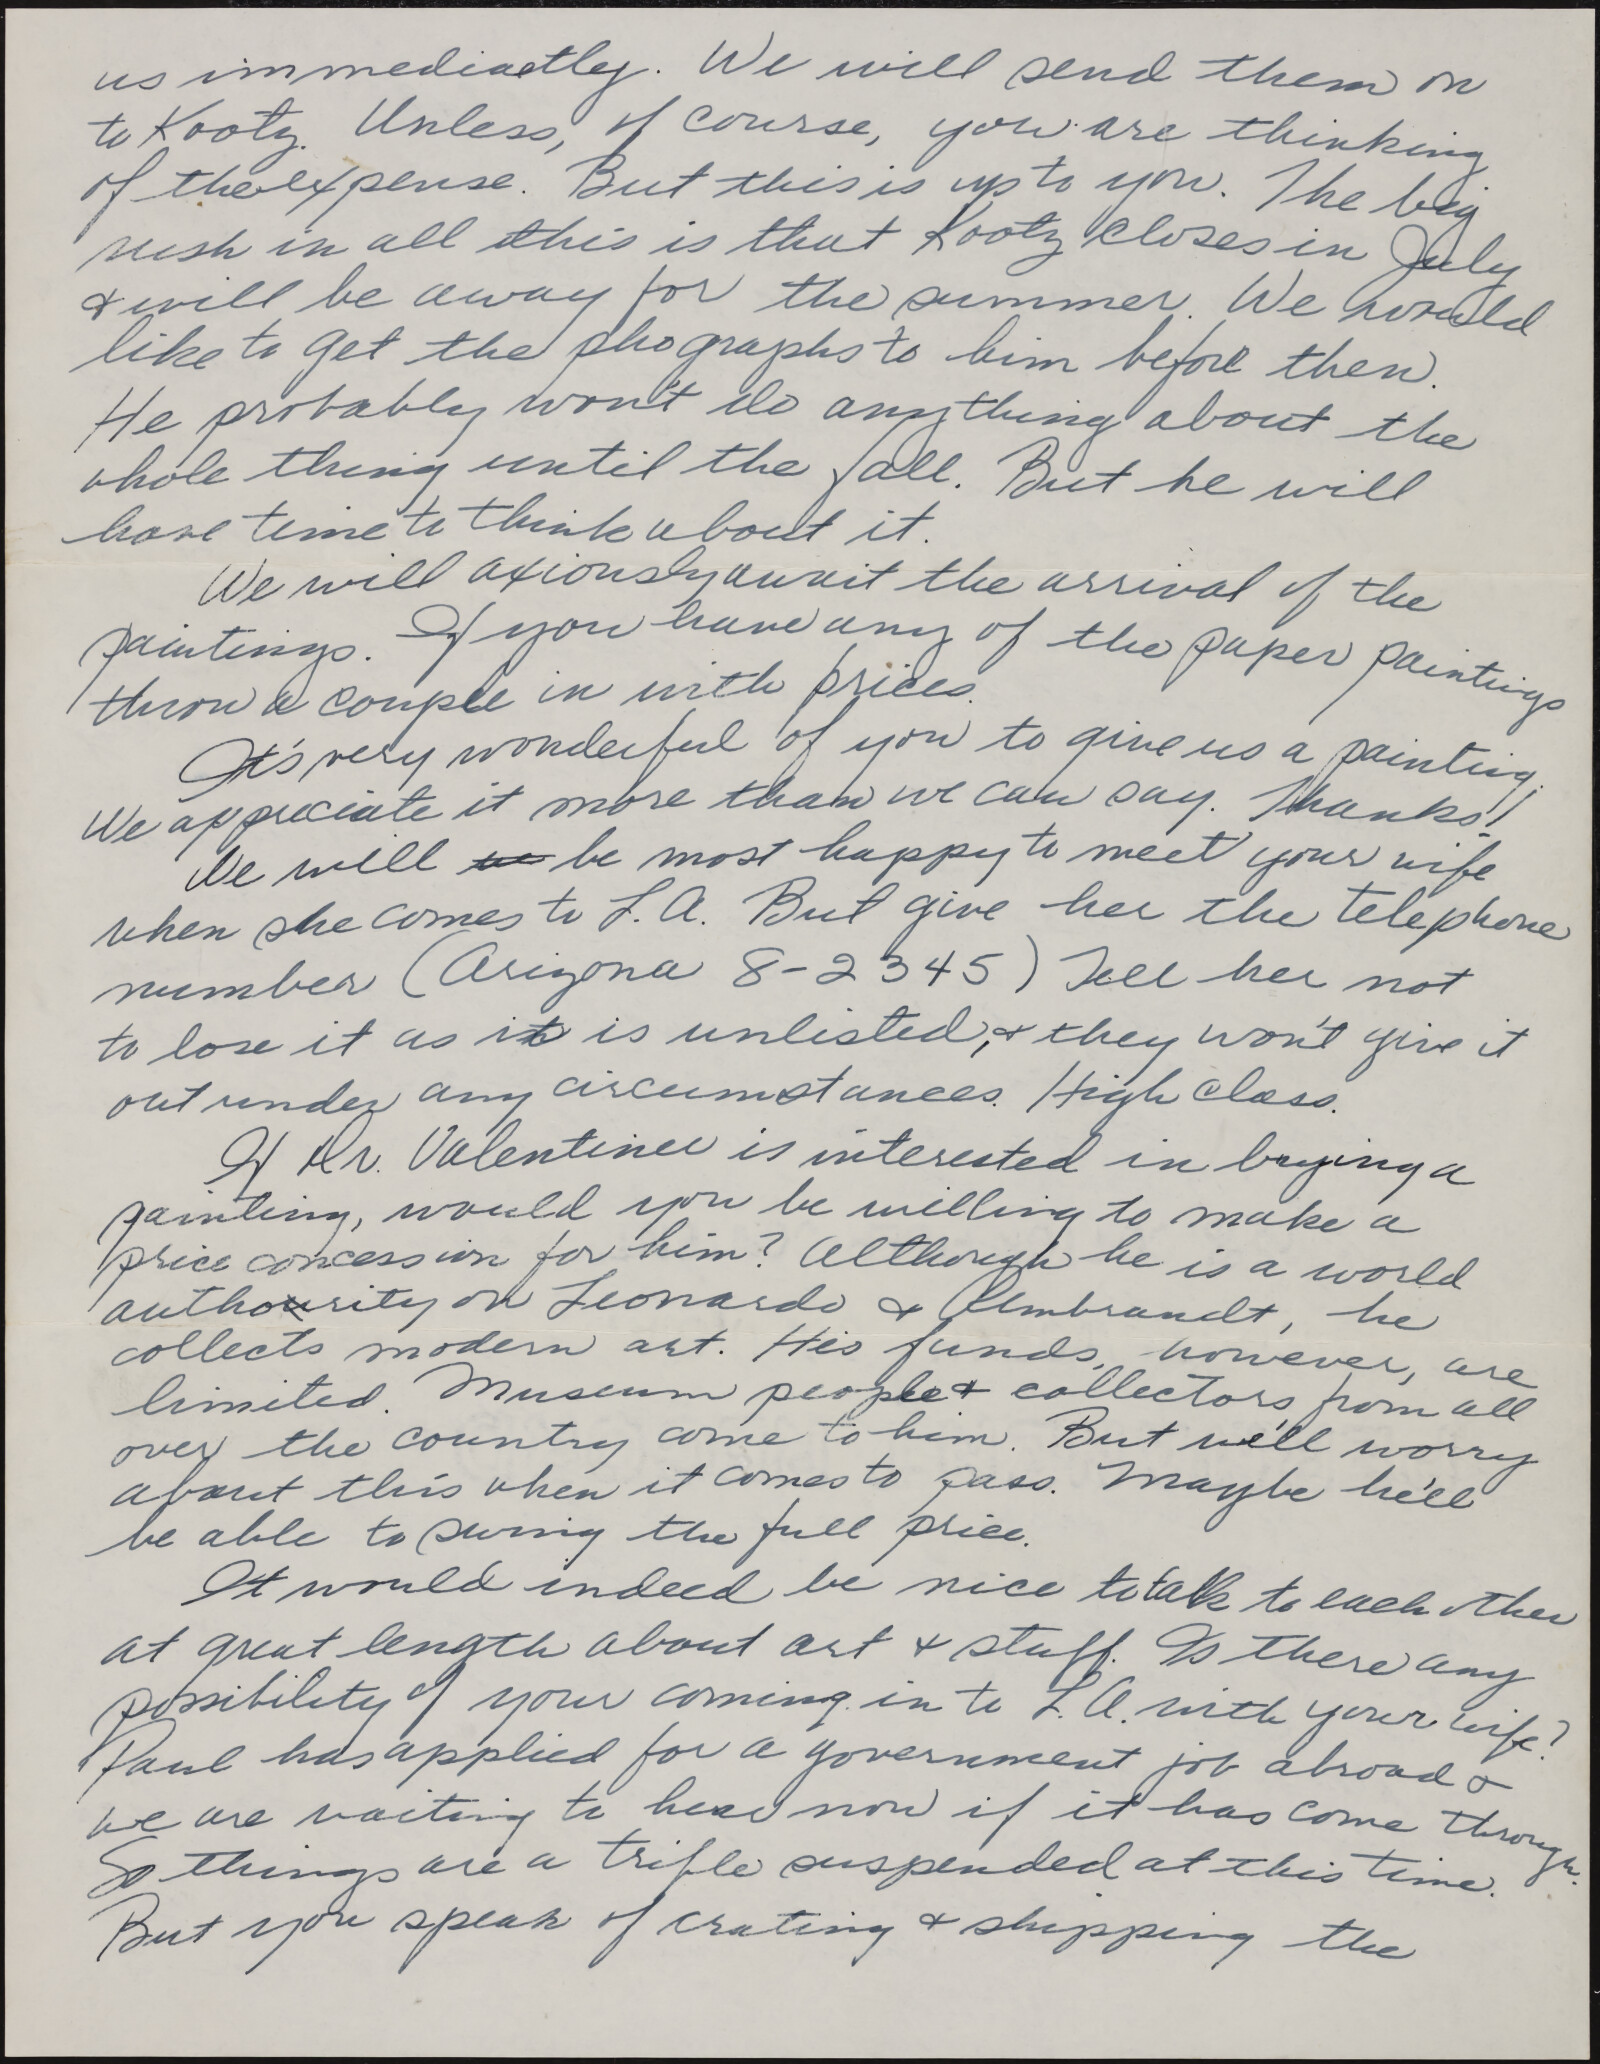 us immediaetley. We will send them on
to Kootz. Unless, of course, you are thinking
of the expense. But this is up to you. The big
rush in all this is that Kootz closes in July
& will be away for the summer. We would
like to get the phographs to him before then.
He probably won't do anything about the
whole thing until the fall. But he will
have time to think about it.
We will axiously await the arrival of the
paintings. If you have any of the paper paintings
throw a couple in with prices.
It's very wonderful of you to give us a painting.
We appreciate it more than we can say. Thanks!
We will be most happy to meet your wife
when she comes to L.A. But give her the telephone
number (Arizona 8-2345) Tell her not
to lose it as it is unlisted, & they won't give it
out under any circumstances. High class.
If Dr. Valentiner is interested in buying a
painting, would you be willing to make a
price concession for him? Although he is a world
authority on Leonardo & Rembrandt, he
collects modern art. His funds, however, are
limited. Museum people & collectors from all
over the country come to him. But we'll worry
about this when it comes to pass. Maybe he'll
be able to swing the full price.
It would indeed be nice to talk to each other
at great length about art & stuff. Is there any
possibility of your coming in to L.A. with your wife?
Paul has applied for a government job abroad &
we are waiting to hear now if it has come through.
So things are a trifle suspended at this time.
But you speak of crating & shipping the